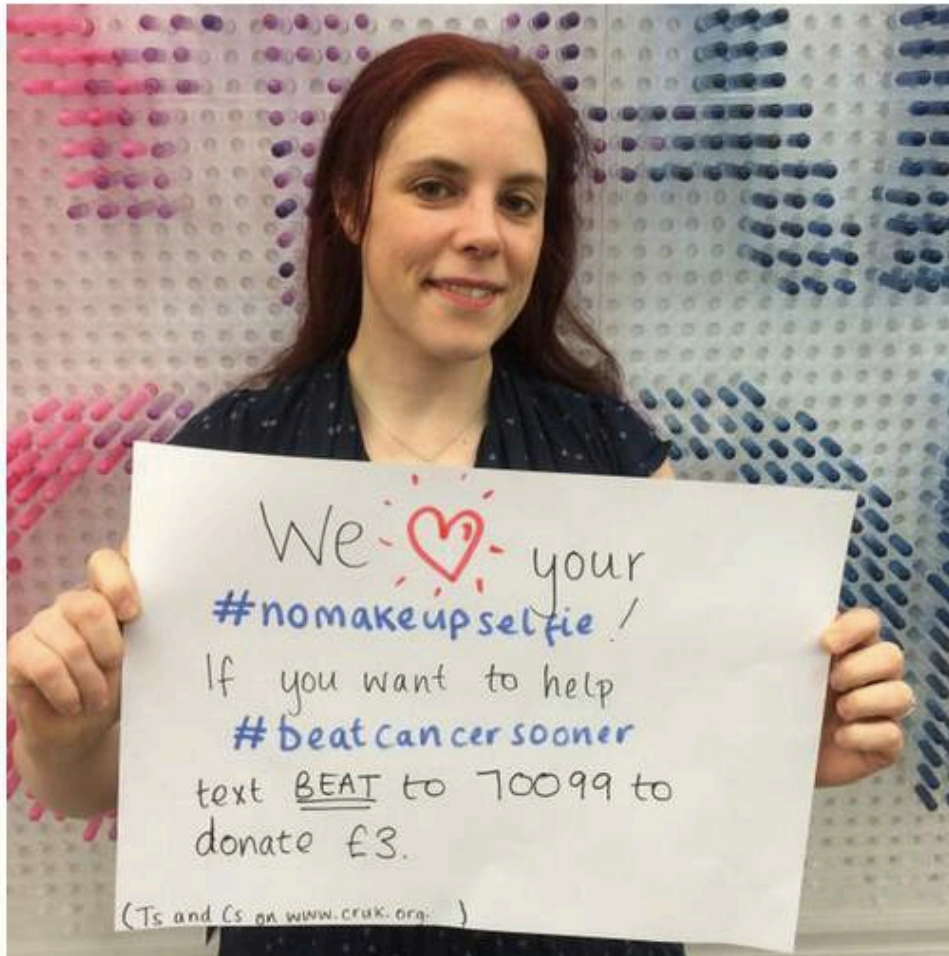 We ♥ your
#nomakeupselfie!
If you want to help
#beatcancersooner
text BEAT to 70099 to
donate £3.
(Ts and Cs on www.cruk.org. )